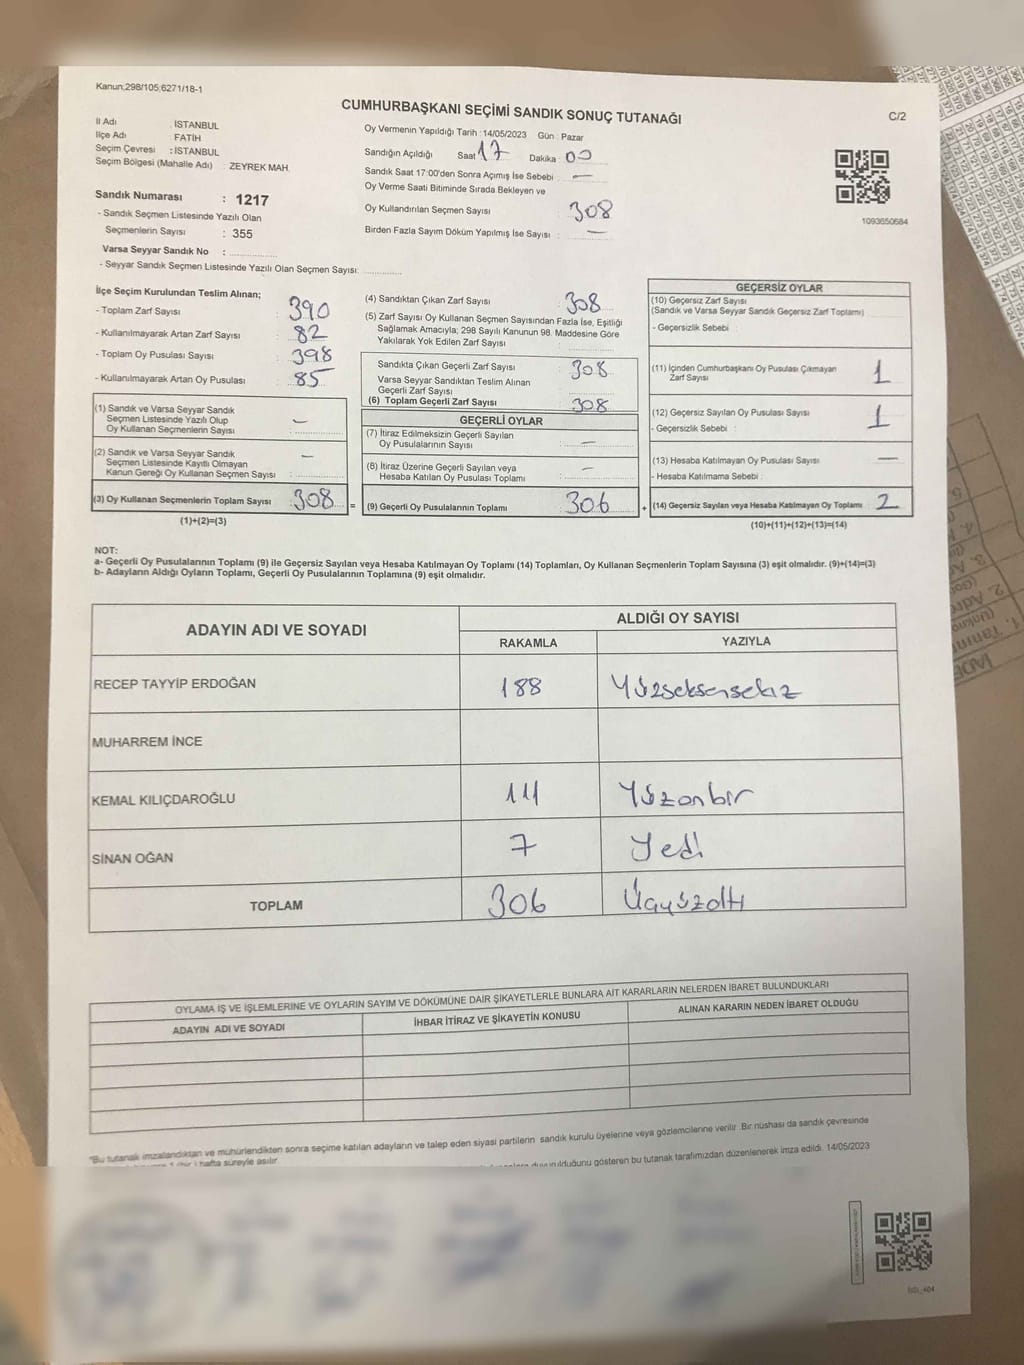 Kanun;298/105;6271/18-1
CUMHURBAŞKANI SEÇİMİ SANDIK SONUÇ TUTANAĞI
C/2
İl Adı : İSTANBUL
İlçe Adı : FATİH
Seçim Çevresi : İSTANBUL
Seçim Bölgesi (Mahalle Adı) : ZEYREK MAH.
Sandık Numarası : 1217
- Sandık Seçmen Listesinde Yazılı Olan
Seçmenlerin Sayısı : 355
Varsa Seyyar Sandık No :
- Seyyar Sandık Seçmen Listesinde Yazılı Olan Seçmen Sayısı:
Oy Vermenin Yapıldığı Tarih :14/05/2023 Gün : Pazar
Sandığın Açıldığı Saat 17 Dakika : 00
Sandık Saat 17:00'den Sonra Açımış İse Sebebi : —
Oy Verme Saati Bitiminde Sırada Bekleyen ve
Oy Kullandırılan Seçmen Sayısı 308
Birden Fazla Sayım Döküm Yapılmış İse Sayısı : —
1093650684
İlçe Seçim Kurulundan Teslim Alınan;
- Toplam Zarf Sayısı : 390
- Kullanılmayarak Artan Zarf Sayısı : 82
- Toplam Oy Pusulası Sayısı : 398
- Kullanılmayarak Artan Oy Pusulası : 85
(1) Sandık ve Varsa Seyyar Sandık
Seçmen Listesinde Yazılı Olup
Oy Kullanan Seçmenlerin Sayısı : —
(2) Sandık ve Varsa Seyyar Sandık
Seçmen Listesinde Kayıtlı Olmayan
Kanun Gereği Oy Kullanan Seçmen Sayısı : —
(3) Oy Kullanan Seçmenlerin Toplam Sayısı : 308 =
(1)+(2)=(3)
(4) Sandıktan Çıkan Zarf Sayısı : 308
(5) Zarf Sayısı Oy Kullanan Seçmen Sayısından Fazla İse, Eşitliği
Sağlamak Amacıyla; 298 Sayılı Kanunun 98. Maddesine Göre
Yakılarak Yok Edilen Zarf Sayısı :
Sandıkta Çıkan Geçerli Zarf Sayısı : 308
Varsa Seyyar Sandıktan Teslim Alınan
Geçerli Zarf Sayısı :
(6) Toplam Geçerli Zarf Sayısı : 308
GEÇERLİ OYLAR
(7) İtiraz Edilmeksizin Geçerli Sayılan
Oy Pusulalarının Sayısı : —
(8) İtiraz Üzerine Geçerli Sayılan veya
Hesaba Katılan Oy Pusulası Toplamı : —
(9) Geçerli Oy Pusulalarının Toplamı : 306 +
GEÇERSİZ OYLAR
(10) Geçersiz Zarf Sayısı
(Sandık ve Varsa Seyyar Sandık Geçersiz Zarf Toplamı)
- Geçersizlik Sebebi :
(11) İçinden Cumhurbaşkanı Oy Pusulası Çıkmayan
Zarf Sayısı 1
(12) Geçersiz Sayılan Oy Pusulası Sayısı : 1
- Geçersizlik Sebebi :
(13) Hesaba Katılmayan Oy Pusulası Sayısı : —
- Hesaba Katılmama Sebebi :
(14) Geçersiz Sayılan veya Hesaba Katılmayan Oy Toplamı : 2
(10)+(11)+(12)+(13)=(14)
NOT:
a- Geçerli Oy Pusulalarının Toplamı (9) ile Geçersiz Sayılan veya Hesaba Katılmayan Oy Toplamı (14) Toplamları, Oy Kullanan Seçmenlerin Toplam Sayısına (3) eşit olmalıdır. (9)+(14)=(3)
b- Adayların Aldığı Oyların Toplamı, Geçerli Oy Pusulalarının Toplamına (9) eşit olmalıdır.
ADAYIN ADI VE SOYADI ALDIĞI OY SAYISI
RAKAMLA YAZIYLA
RECEP TAYYİP ERDOĞAN 188 Yüzseksensekiz
MUHARREM İNCE
KEMAL KILIÇDAROĞLU 111 Yüzonbir
SİNAN OĞAN 7 Yedi
TOPLAM 306 Üçyüzaltı
OYLAMA İŞ VE İŞLEMLERİNE VE OYLARIN SAYIM VE DÖKÜMÜNE DAİR ŞİKAYETLERLE BUNLARA AİT KARARLARIN NELERDEN İBARET BULUNDUKLARI
ADAYIN ADI VE SOYADI İHBAR İTİRAZ VE ŞİKAYETİN KONUSU ALINAN KARARIN NEDEN İBARET OLDUĞU
*Bu tutanak imzalandıktan ve mühürlendikten sonra seçime katılan adayların ve talep eden siyasi partilerin sandık kurulu üyelerine veya gözlemcilerine verilir. Bir nüshası da sandık çevresinde
1 (bir ) hafta süreyle asılır.
olduğunu gösteren bu tutanak tarafımızdan düzenlenerek imza edildi. 14/05/2023